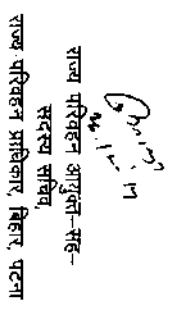 राज्य परिवहन आयुक्त-सह-
सदस्य सचिव,
राज्य परिवहन प्राधिकार, बिहार, पटना